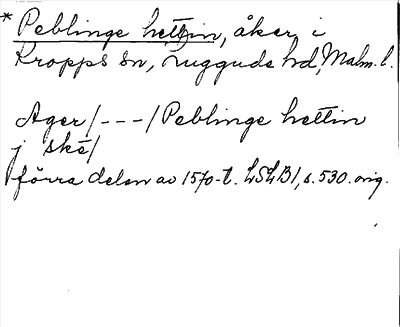 * Peblinge hettin, åker i
Kropps sn, Luggude hd, Malm. l.
Ager/---/Peblinge hettin
j ske/
förra delen av 1570-t. LSLB1, s. 530. orig.